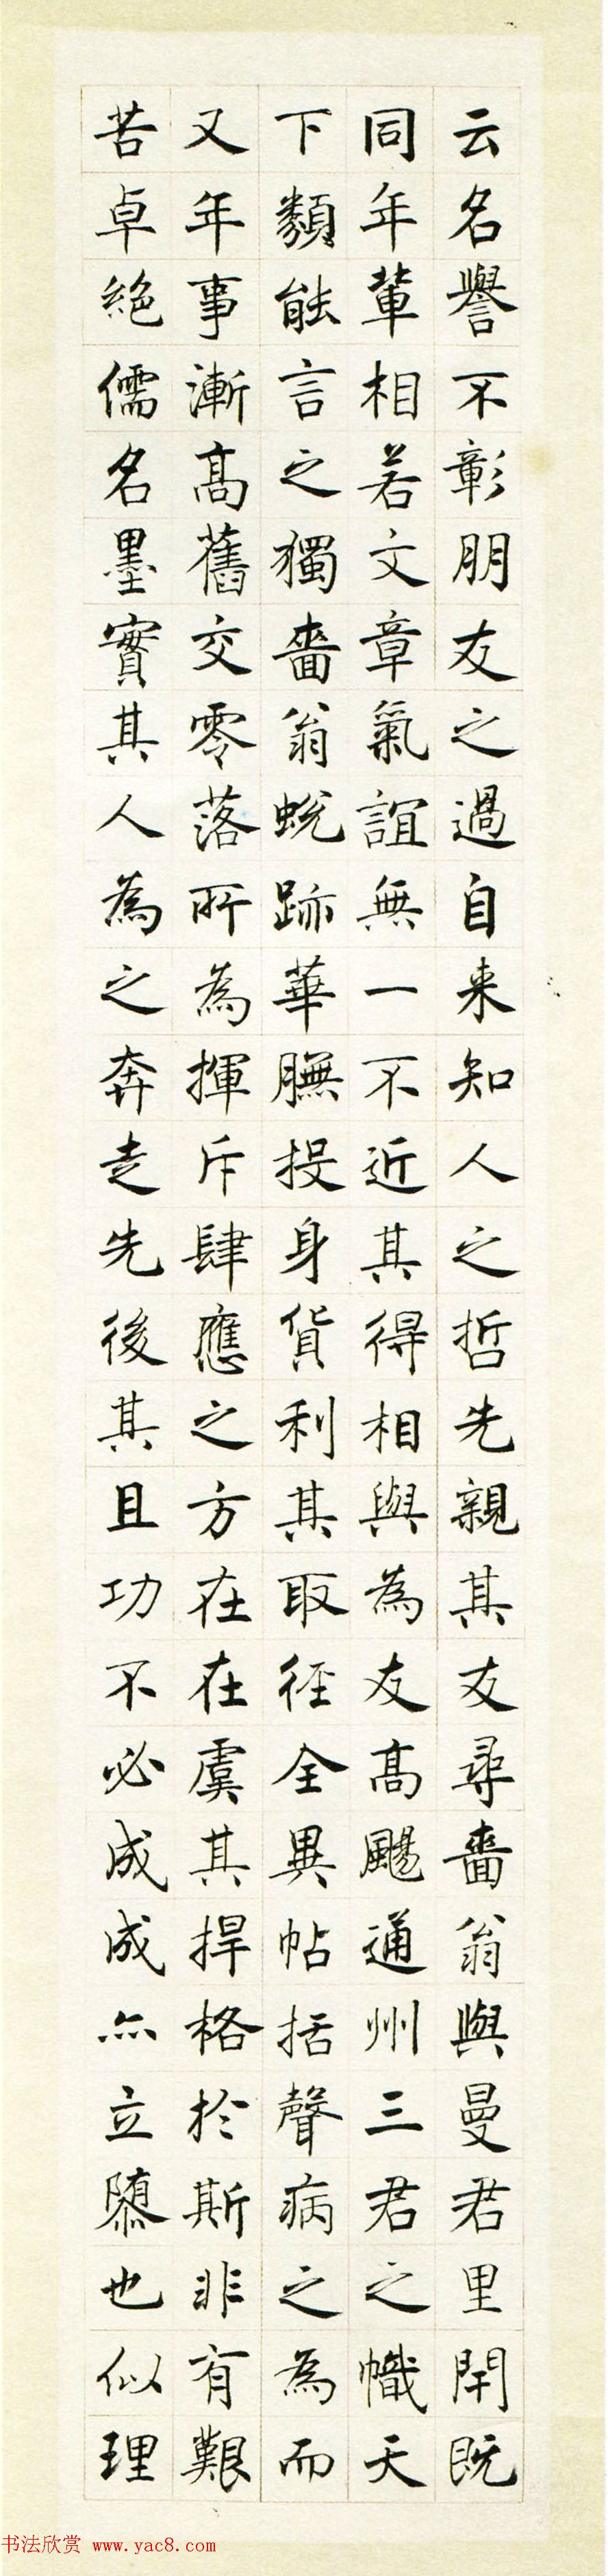 云名譽不彰朋友之過自来知人之哲先親其友尋嗇翁與曼君里閈既
同年輩相若文章氣誼無一不近其得相與為友高颺通州三君之幟天
下類能言之獨嗇翁蛻跡華膴投身貨利其取徑全異帖括聲病之為而
又年事漸高舊交零落所為揮斥肆應之方在在虞其捍格於斯非有艱
苦卓絶儒名墨實其人為之奔走先後其且功不必成成亦立隳也似理
书法欣赏 www.yac8.com